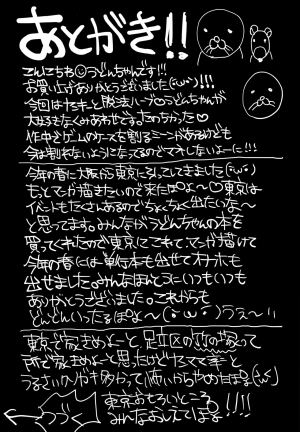 あとがき!!
こんにちわ うどんちゃんです!!!
お買い上げありがとうございました(´;ω;`)!!!
今回は と脱法ハーブ うどんちゃんが
大好きな くみあわせできてたのしかった
作中でゲームのケースを割るシーンがあるけども
今は割れないようになってるのでマネしないよーに!!!
今年の春に大阪から東京に引っこしてきました
もっとマンガ描きたいので来たぽよ〜♡東京は
イベントもたくさんあるのでちょくちょく出たいな〜
と思ってます。みんながうどんちゃんの本を
買ってくれたので東京にこれて、マンガ描けて
今年の春には単行本も出せて
出せました。みんなほんとにいつもいつも
ありがとうございました。これからも
どんどんいったるぽよ〜(´・ω・`)うぇ〜い
東京で家きめよーと足立区の って
所で家きめよーと思ったけど
うるさい人が多かって怖いからやめたぽよ
つづく
東京おもろいところ
みんなおしえてぽよ!!!!